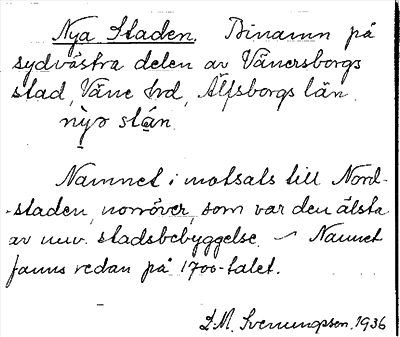 Nya Staden. Binamn på
sydvästra delen av Vänersborgs
stad, Väne hd, Älfsborgs län.
nỵ̀ɔ stán.
Namnet i motsats till Nord-
-staden, norröver, som var den älsta
av nuv. stadsbebyggelse. – Namnet
fanns redan på 1700-talet.
D.M. Svenungsson. 1936